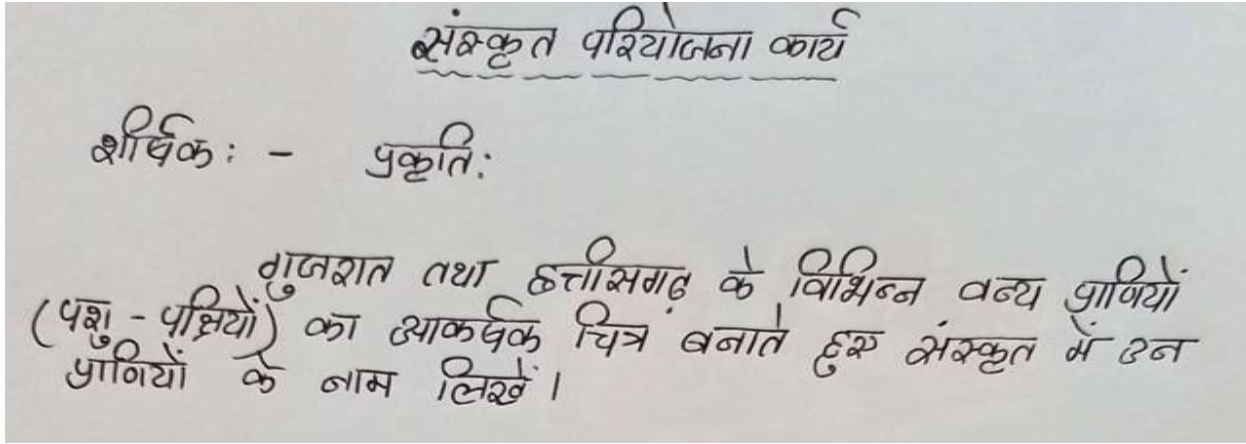 संस्कृत परियोजना कार्य
शीर्षक: - प्रकृति:
गुजरात तथा छत्तीसगढ़ के विभिन्न वन्य प्राणियों
(पशु - पक्षियों) का आकर्षक चित्र बनाते हुए संस्कृत में उन
प्राणियों के नाम लिखें।